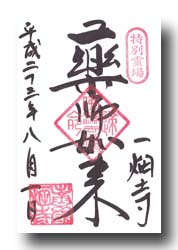 特別霊場
藥師如来
一畑寺
平成二三年八月一日